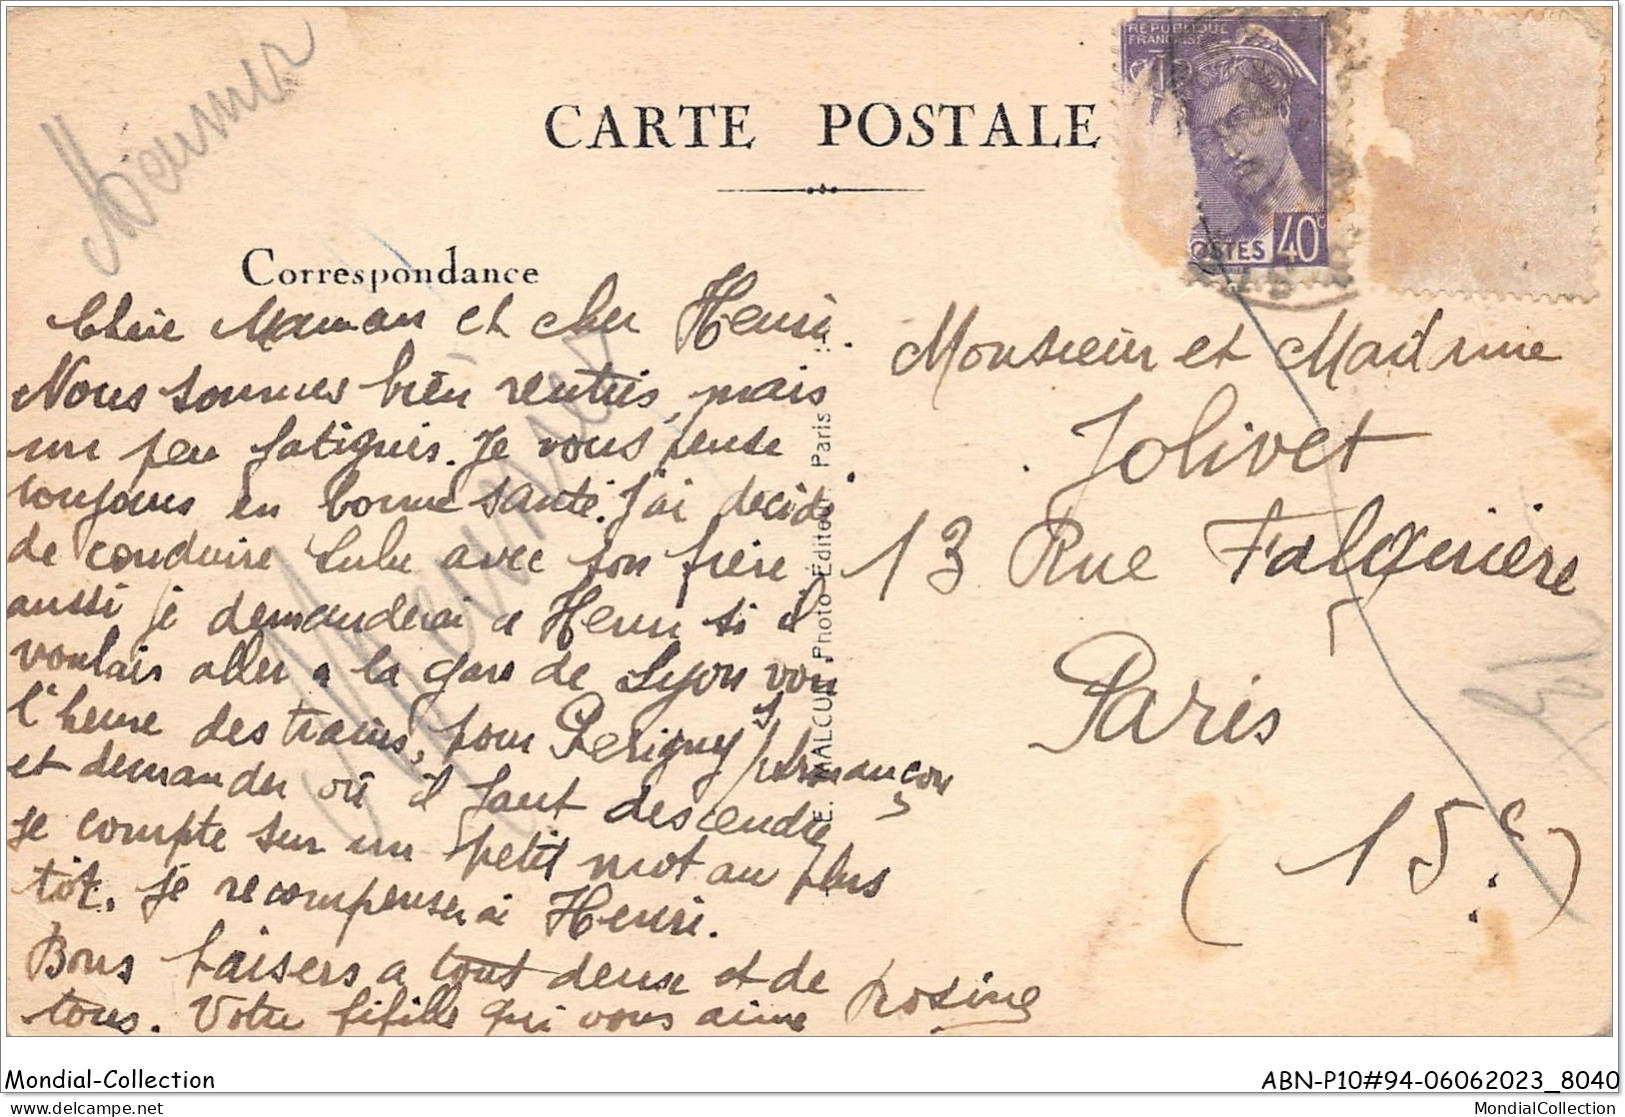 CARTE POSTALE
REPUBLIQUE
FRANÇAISE
OSTES 40c
Correspondance
Chère Maman et cher Henri.
Nous sommes bien rentrés, mais
un peu fatigués. Je vous pense
toujours en bonne santé. J'ai décidé
de conduire Lulu avec son frère
aussi je demanderai a Henri si il
voulais aller a la gare de Lyon voir
l'heure des trains, pour Perigny s/Armançon
et demander où il faut descendre,
je compte sur un petit mot au plus
tôt. Je recompenserai Henri.
Bons baisers a tout deux et de
tous. Votre fifille qui vous aime Rosine
E. MALCUIT Photo-Éditeur, Paris
Monsieur et Madame
Jolivet
13 Rue Falguière
Paris
(15e)
Mondial-Collection
ABN-P10#94-06062023_8040
delcampe.net
MondialCollection